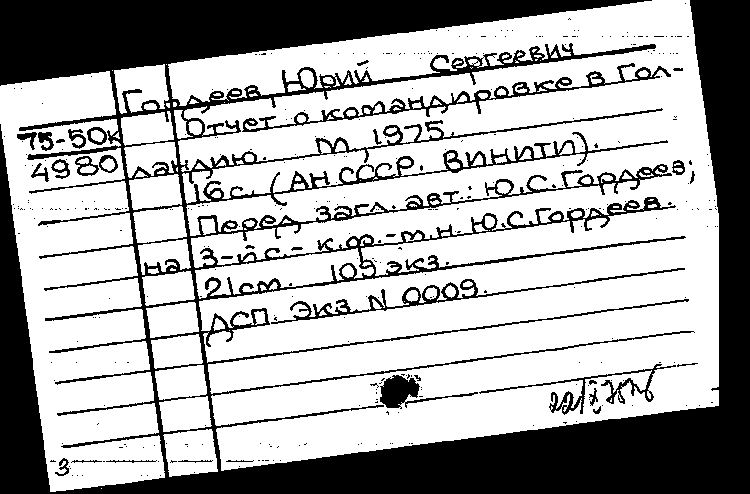 Гордеев, Юрий Сергеевич
75-50к Отчет о командировке в Гол-
4980 ландию. М., 1975.
16с. (АН СССР. ВИНИТИ).
Перед загл. авт.: Ю.С.Гордеев;
на 3-й с. - к.ф.-м.н. Ю.С.Гордеев.
21см. 109 экз.
ДСП. Экз. N 0009.
3